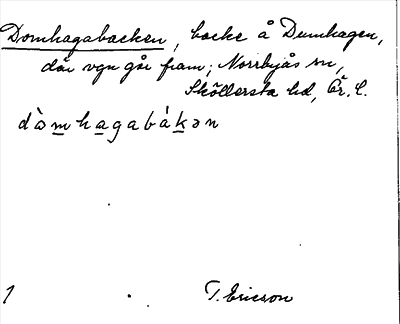 Domhagabacken, backe å Dumhagen,
där vgn går fram; Norrbyås sn,
Sköllersta hd, Ör. l.
dòm̲ha̲gabák̲ən
1 T. Ericson